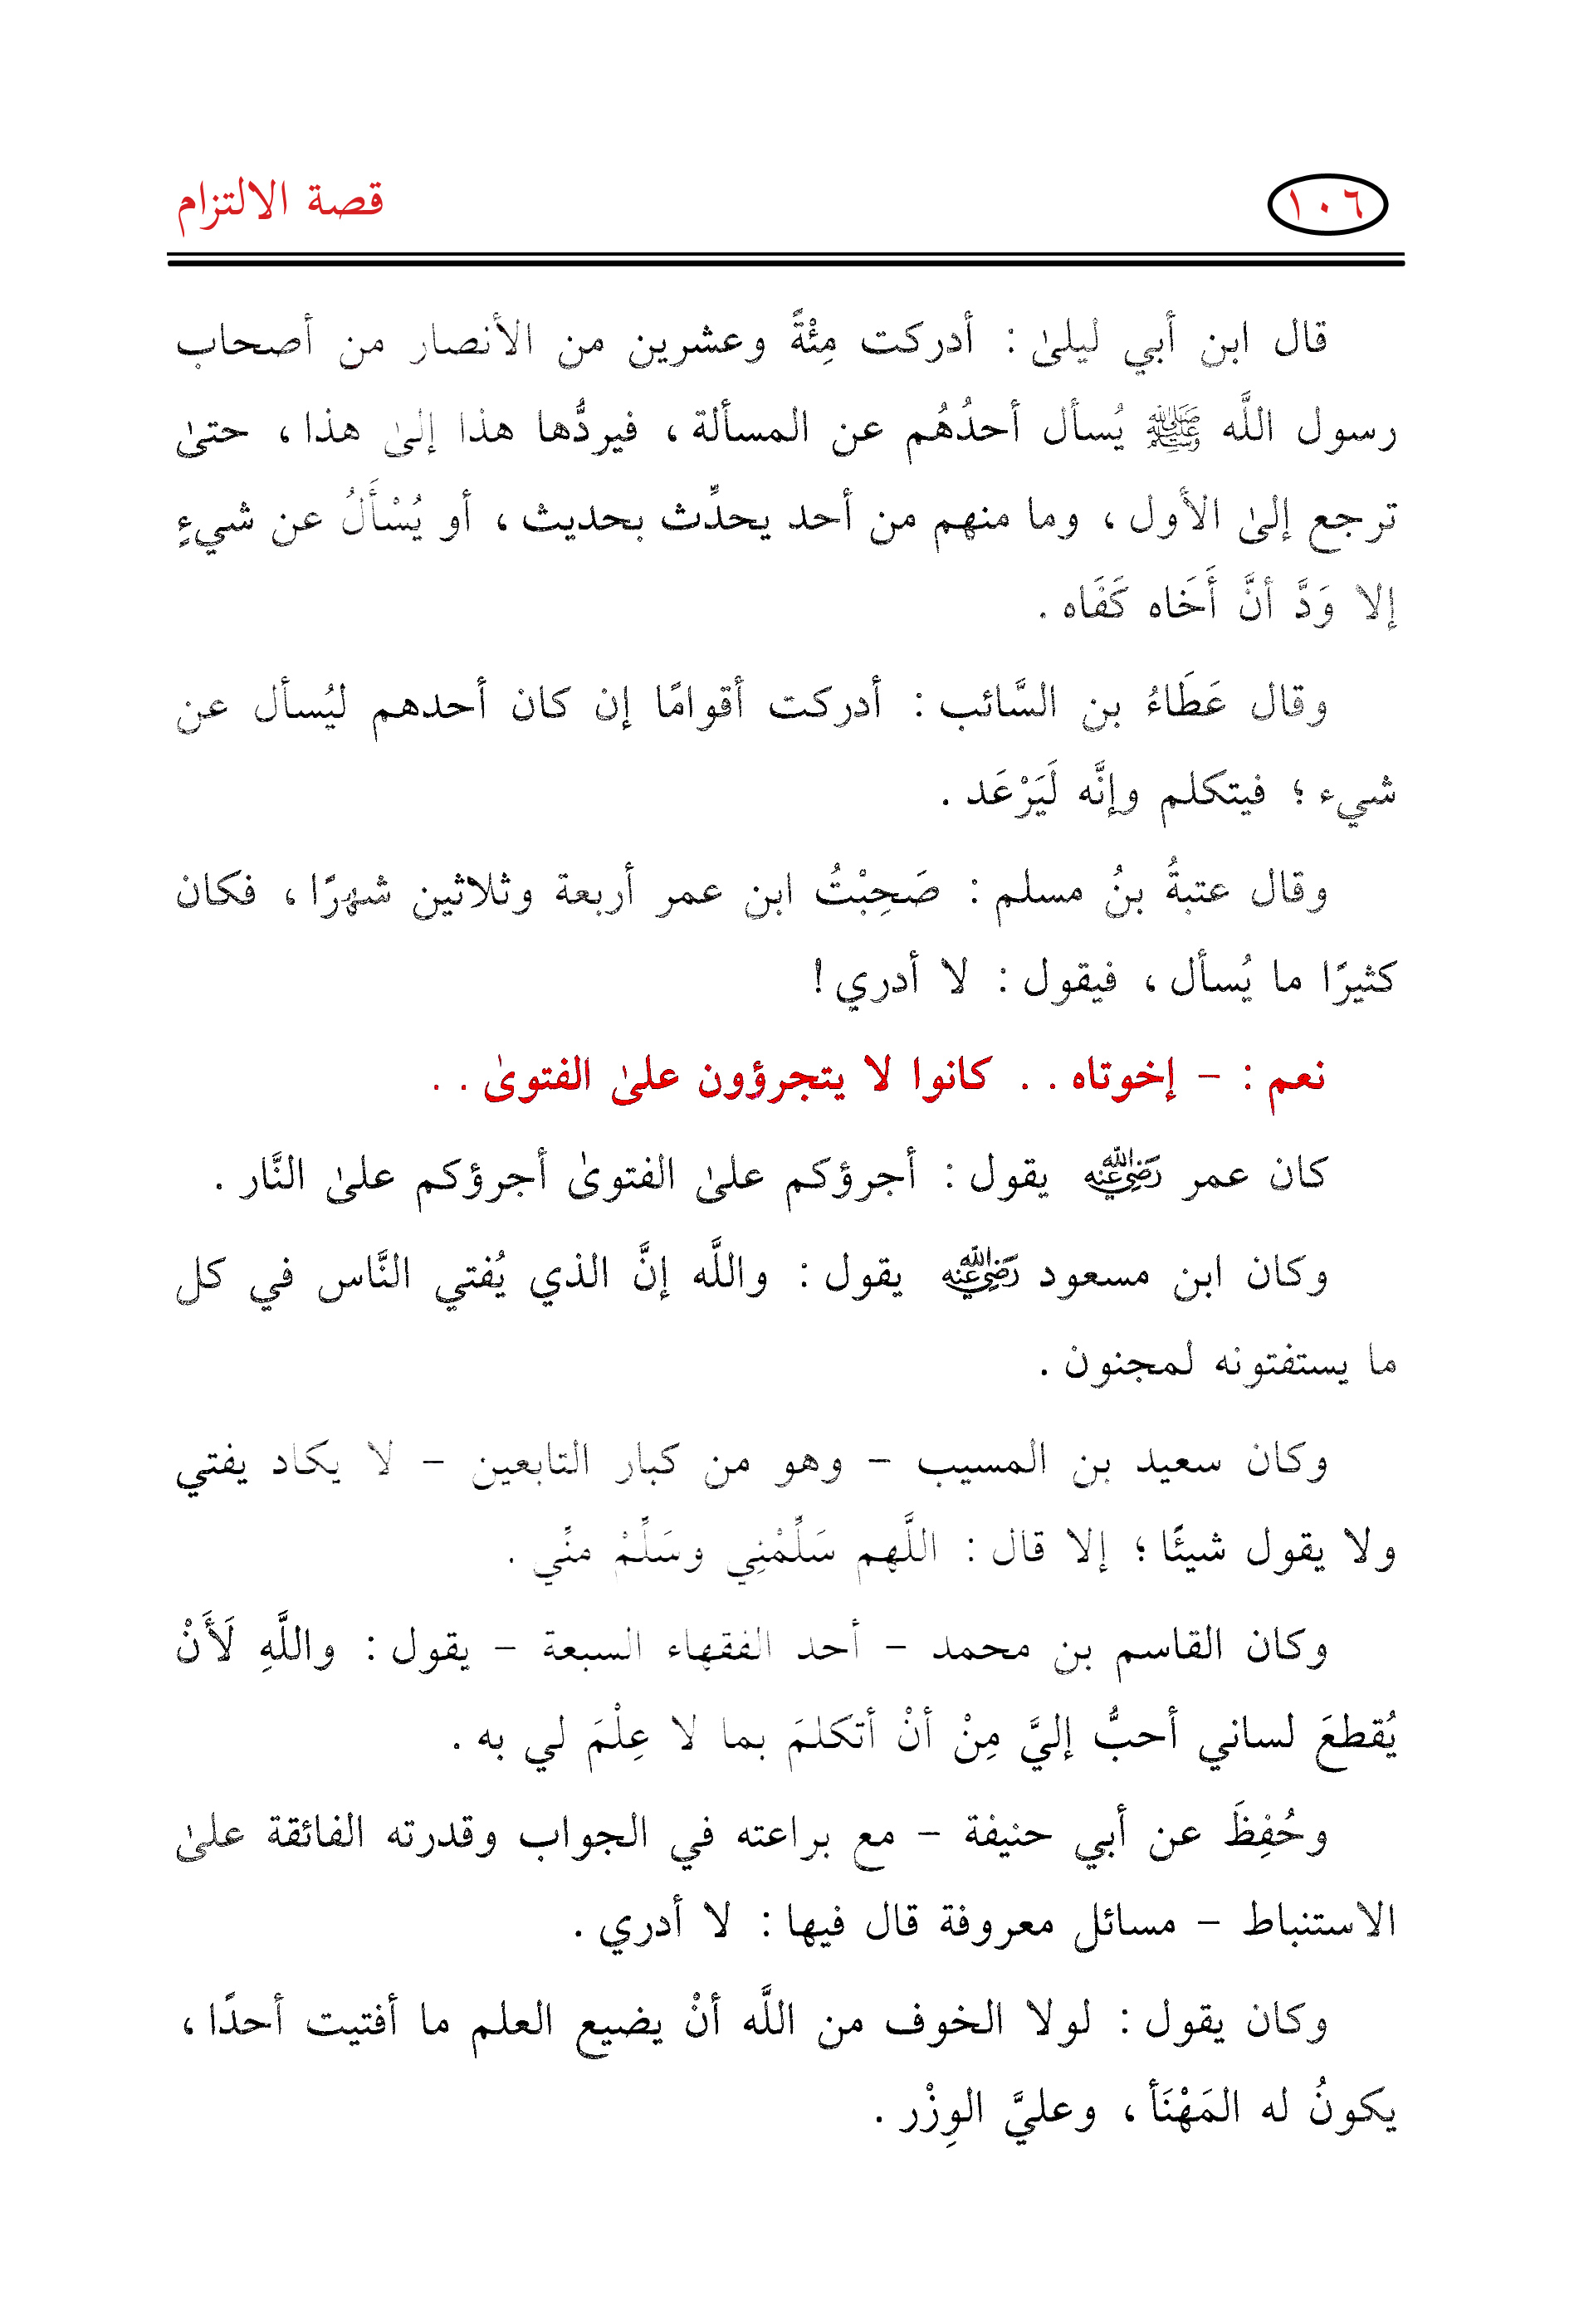 ١٠٦
قصة الالتزام
قال ابن أبي ليلىٰ : أدركت مِئْةً وعشرين من الأنصار من أصحاب
رسول اللَّه ﷺ يُسأل أحدُهُم عن المسألة ، فيردُّها هذا إلىٰ هذا ، حتىٰ
ترجع إلىٰ الأول ، وما منهم من أحد يحدِّث بحديث ، أو يُسْأَلُ عن شيءٍ
إلا وَدَّ أنَّ أَخَاه كَفَاه .
وقال عَطَاءُ بن السَّائب : أدركت أقوامًا إن كان أحدهم ليُسأل عن
شيء ؛ فيتكلم وإنَّه لَيَرْعَد .
وقال عتبةُ بنُ مسلم : صَحِبْتُ ابن عمر أربعة وثلاثين شهرًا ، فكان
كثيرًا ما يُسأل ، فيقول : لا أدري !
نعم : - إخوتاه . . كانوا لا يتجرؤون علىٰ الفتوىٰ . .
كان عمر رَضِيَ اللهُ عَنْهُ يقول : أجرؤكم علىٰ الفتوىٰ أجرؤكم علىٰ النَّار .
وكان ابن مسعود رَضِيَ اللهُ عَنْهُ يقول : واللَّه إنَّ الذي يُفتي النَّاس في كل
ما يستفتونه لمجنون .
وكان سعيد بن المسيب - وهو من كبار التابعين - لا يكاد يفتي
ولا يقول شيئًا ؛ إلا قال : اللَّهم سَلِّمْنِي وسَلِّمْ منِّي .
وكان القاسم بن محمد - أحد الفقهاء السبعة - يقول : واللَّهِ لَأَنْ
يُقطعَ لساني أحبُّ إليَّ مِنْ أنْ أتكلمَ بما لا عِلْمَ لي به .
وحُفِظَ عن أبي حنيفة - مع براعته في الجواب وقدرته الفائقة علىٰ
الاستنباط - مسائل معروفة قال فيها : لا أدري .
وكان يقول : لولا الخوف من اللَّه أنْ يضيع العلم ما أفتيت أحدًا ،
يكونُ له المَهْنَأ ، وعليَّ الوِزْر .